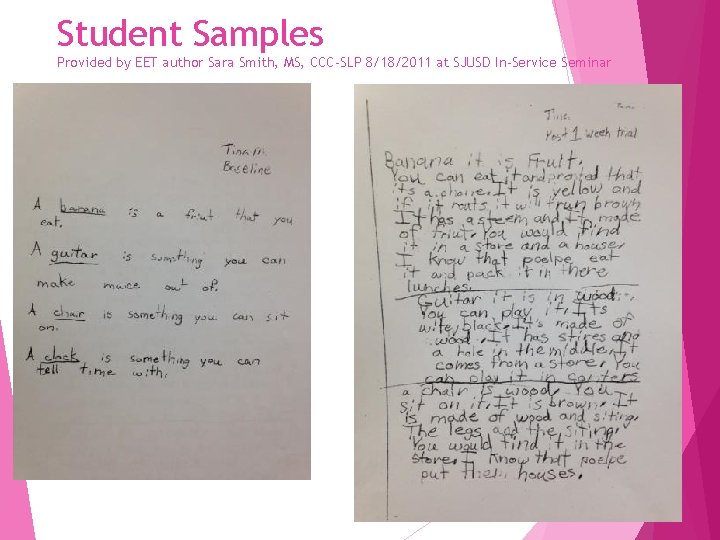 Student Samples
Provided by EET author Sara Smith, MS, CCC-SLP 8/18/2011 at SJUSD In-Service Seminar
Tina M.
Baseline
A banana is a friut that you
eat.
A guitar is somthing you can
make muice out of.
A chair is something you can sit
on.
A clock is something you can
tell time with.
Tina
Post 1 week trial
Banana it is Fruit.
You can eat it and proved that
its a. It is yellow and
if it roats it will trun brown
It has a steem and It made
of friut. You would find
it in a store and a house.
I know that poelpe eat
it and pack it in there
lunches.
Guitar it is in wood.
You can play it. Its
wite, black. It's made of
wood. It has stires and
a hole in the middle. It
comes from a store. You
can play it in
a chair is wood. You
sit on it. It is brown. It
is made of wood and siting.
The legs and the siting.
You would find it in the
store. I know that poelpe
put them houses.